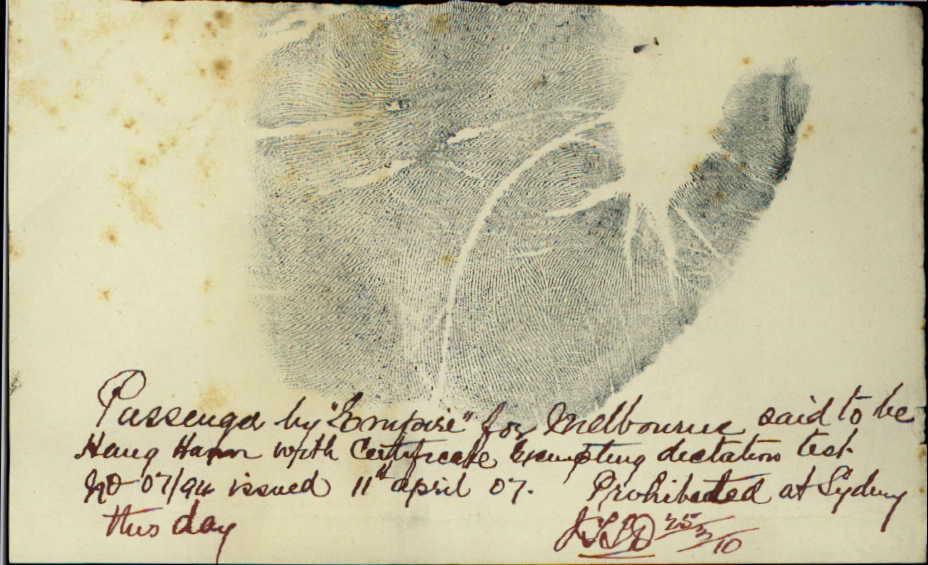 Passenger by "Empire" for Melbourne said to be
Hang Hann with Certificate Exempting dictation test.
No 07/94 issued 11th april 07. Prohibited at Sydney
this day
25/3/10